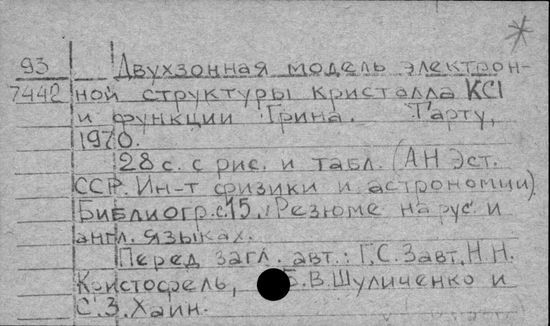 *
93 Двухзонная модель электрон-
7442 ной структуры кристалла KCl
и функции Грина. Тарту,
1970.
28 с. с рис. и табл. (АН Эст.
ССР. Ин-т физики и астрономии).
Библиогр. с. 15. Резюме на рус. и
англ. языках.
Перед загл. авт.: Г.С. Завт, Н.Н.
Кристофель, Б.В. Шуличенко и
С.З. Хаин.